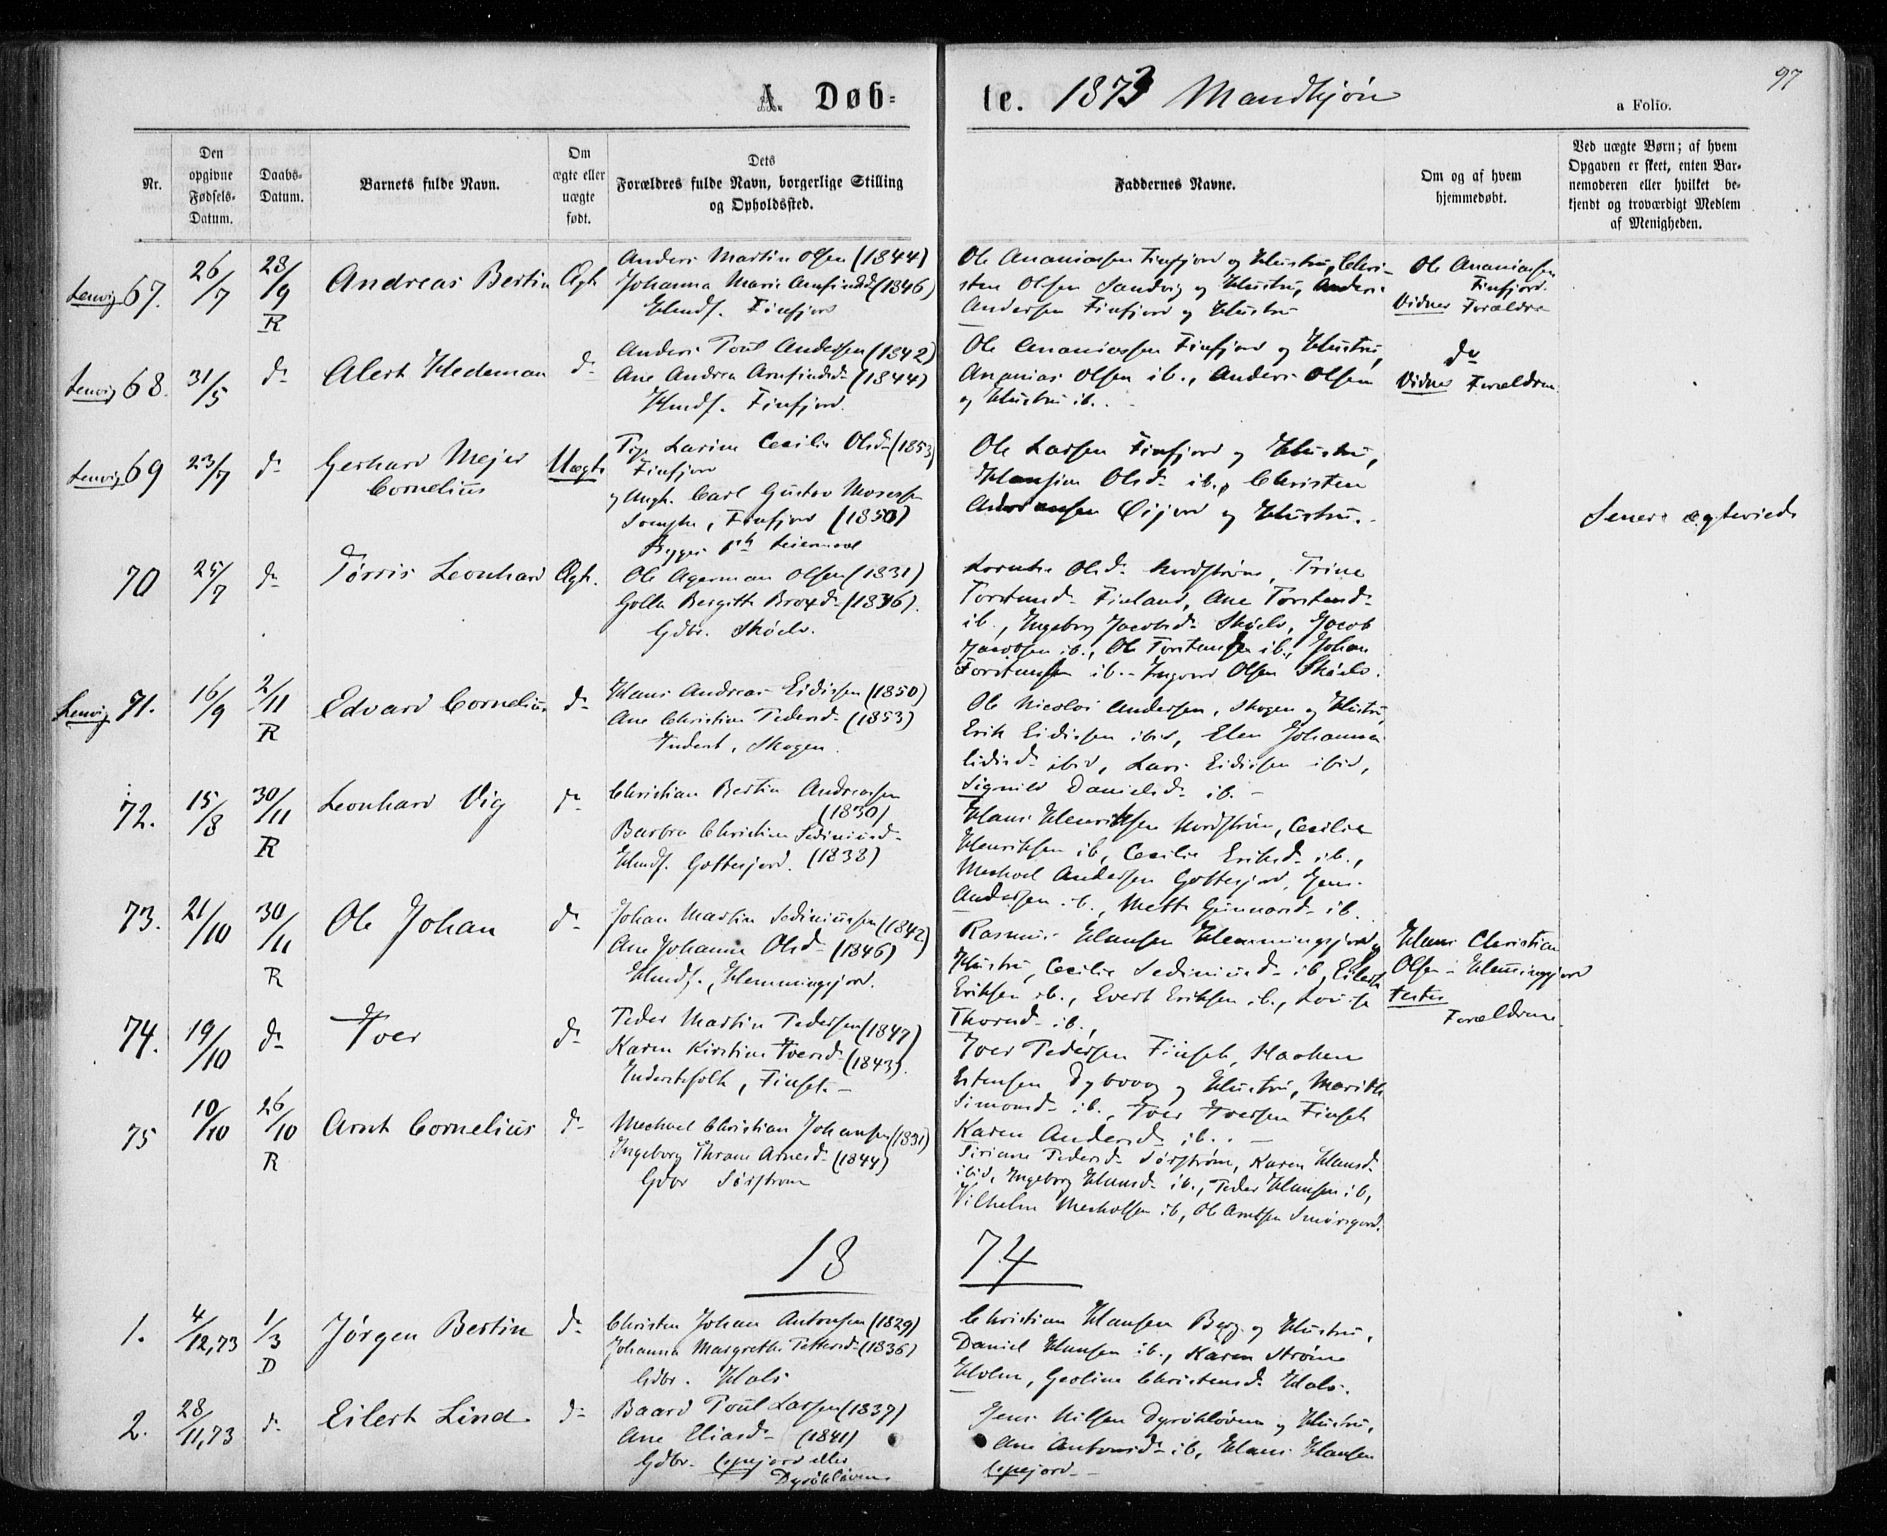 97
A. Døb=
te. 1873 Mandkjøn
a Folio.
Nr.
Den opgivne Fødsels-Datum.
Daabs-Datum.
Barnets fulde Navn.
Om ægte eller uægte født.
Dets Forældres fulde Navn, borgerlige Stilling og Opholdssted.
Faddernes Navne.
Om og af hvem hjemmedøbt.
Ved uægte Børn; af hvem Opgaven er skeet, enten Barnemoderen eller hvilket bekjendt og troværdigt Medlem af Menigheden.
Lenvig 67. 26/7 28/9 R Andreas Bertin Ægt
Anders Martin Olsen (1844)
Johanna Marie Arnfindsd (1846)
Hmdf. Finfjord
Ole Ananiassen Finfjord og Hustru, Chri-
sten Olsen Sandvig og Hustru, Anders
Andersen Finfjord og Hustru
Ole Ananiassen
Finfjord.
Vidner Forældre
Lenvig 68. 31/5 do Alert Hedeman do
Anders Poul Andersen (1842)
Ane Andrea Arnfindsd. (1844)
Hmdf. Finfjord.
Ole Ananiassen Finfjord og Hustru,
Ananias Olsen ib., Anders Olsen
og Hustru ib.
do
Vidner Forældrene
Lenvig 69 23/7 do Gerhard Mejer
Cornelius
Uægte
Pige Larine Cecilie Olsd. (1853)
Finfjord
og Ungk. Carl Gustav Mosessen
Finfjord (1850)
Begges 1ste Leiermaal
Ole Larsen Finfjord og Hustru,
Hansine Olsd. ib., Christen
Adriansen Øijord og Hustru.
Senere ægteviede
70 25/7 do Tørris Leonhard Ægt.
Ole Agerman Olsen (1831)
Golla Bergitte Broxd. (1836).
Gdbr. Skøelv.
Olsd. Nordstrøm, Trine
Torstensd. Finland, Ane Torstensd.
ib., Ingeborg Jacobsd. Skøelv, Jacob
Jacobsen ib., Ole Torstensen ib., Johan
Torstensen ib. - Ingvard Olsen Skøelv.
Lenvig 71. 16/9 2/11 R Edvard Cornelius do
Hans Andreas Eidissen (1850)
Ane Christine Pedersd. (1853)
Inderst, Skogen.
Ole Nicolai Andersen, Skogen og Hustru,
Erik Eidissen ibid, Elen Johanna
Eidisd. ibid, Lars Eidissen ibid,
Signild Danielsd. ib. -
72. 15/8 30/11 R Leonhard Vig do
Christian Bertin Andreassen
(1830)
Barbra Christine Sediniusd.
Hmdf. Gottesjord. (1838)
Hans Henriksen Nordstrøm, Cecilie
Henriksen ib, Cecilie Eriksd. ib.,
Mechael Andersen Gottesjord, Jens
Andersen ib., Mette Gunnarsd. ib.
73. 21/10 30/11 R Ole Johan do
Johan Martin Sediniussen (1842)
Ane Johanna Olsd. (1846)
Hmdf., Hemmingsjord.
Rasmus Hansen Hemmingsjord og
Hustru, Cecilie Sediniusd. ib, Eilert
Eriksen ib., Evert Eriksen ib., Lovise
Thorsd. ib.,
Hans Christian
Olsen - Hemmingsjord
testes
Forældrene.
74. 19/10 do Iver do
Peder Martin Pedersen (1847)
Karen Kirstine Iversd. (1843).
Inderstefolk, Finset. -
Iver Pedersen Finset, Haaken
Estensen Dybvaag og Hustru, Marith
Simonsd. ib., Iver Iversen Finset
Karen Andersd. ib. -
75 10/10 26/10 R Arnt Cornelius do
Mechael Christian Johansen (1831)
Ingeborg Thrane Arnesd. (1844)
Gdbr Sørstrøm
Siriane Pedersd. Sørstrøm, Karen Hansd.
ibid, Ingeborg Hansd. ib., Peder Hansen ib,
Vilhelm Mechelsen ib, Ole Arntsen Smørsgard.
18 74
1. 4/12,73 1/3 D Jørgen Bertin do
Christen Johan Antonsen (1829)
Johanna Margrethe Pettersd. (1836)
Gdbr. Hals
Christian Hansen Berg og Hustru,
Daniel Hansen ib., Karen Strøm
Holm, Geoline Christensd. Hals.
2. 28/11,73 do Eilert Lind do
Baard Poul Larsen (1837)
Ane Eliasd. (1841)
Gdbr. Lysejord eller
Dyrøkløven
Jens Nilsen Dyrøkløven og Hustru,
Ane Antonsd. ib, Hans Hansen
Lysejord. -